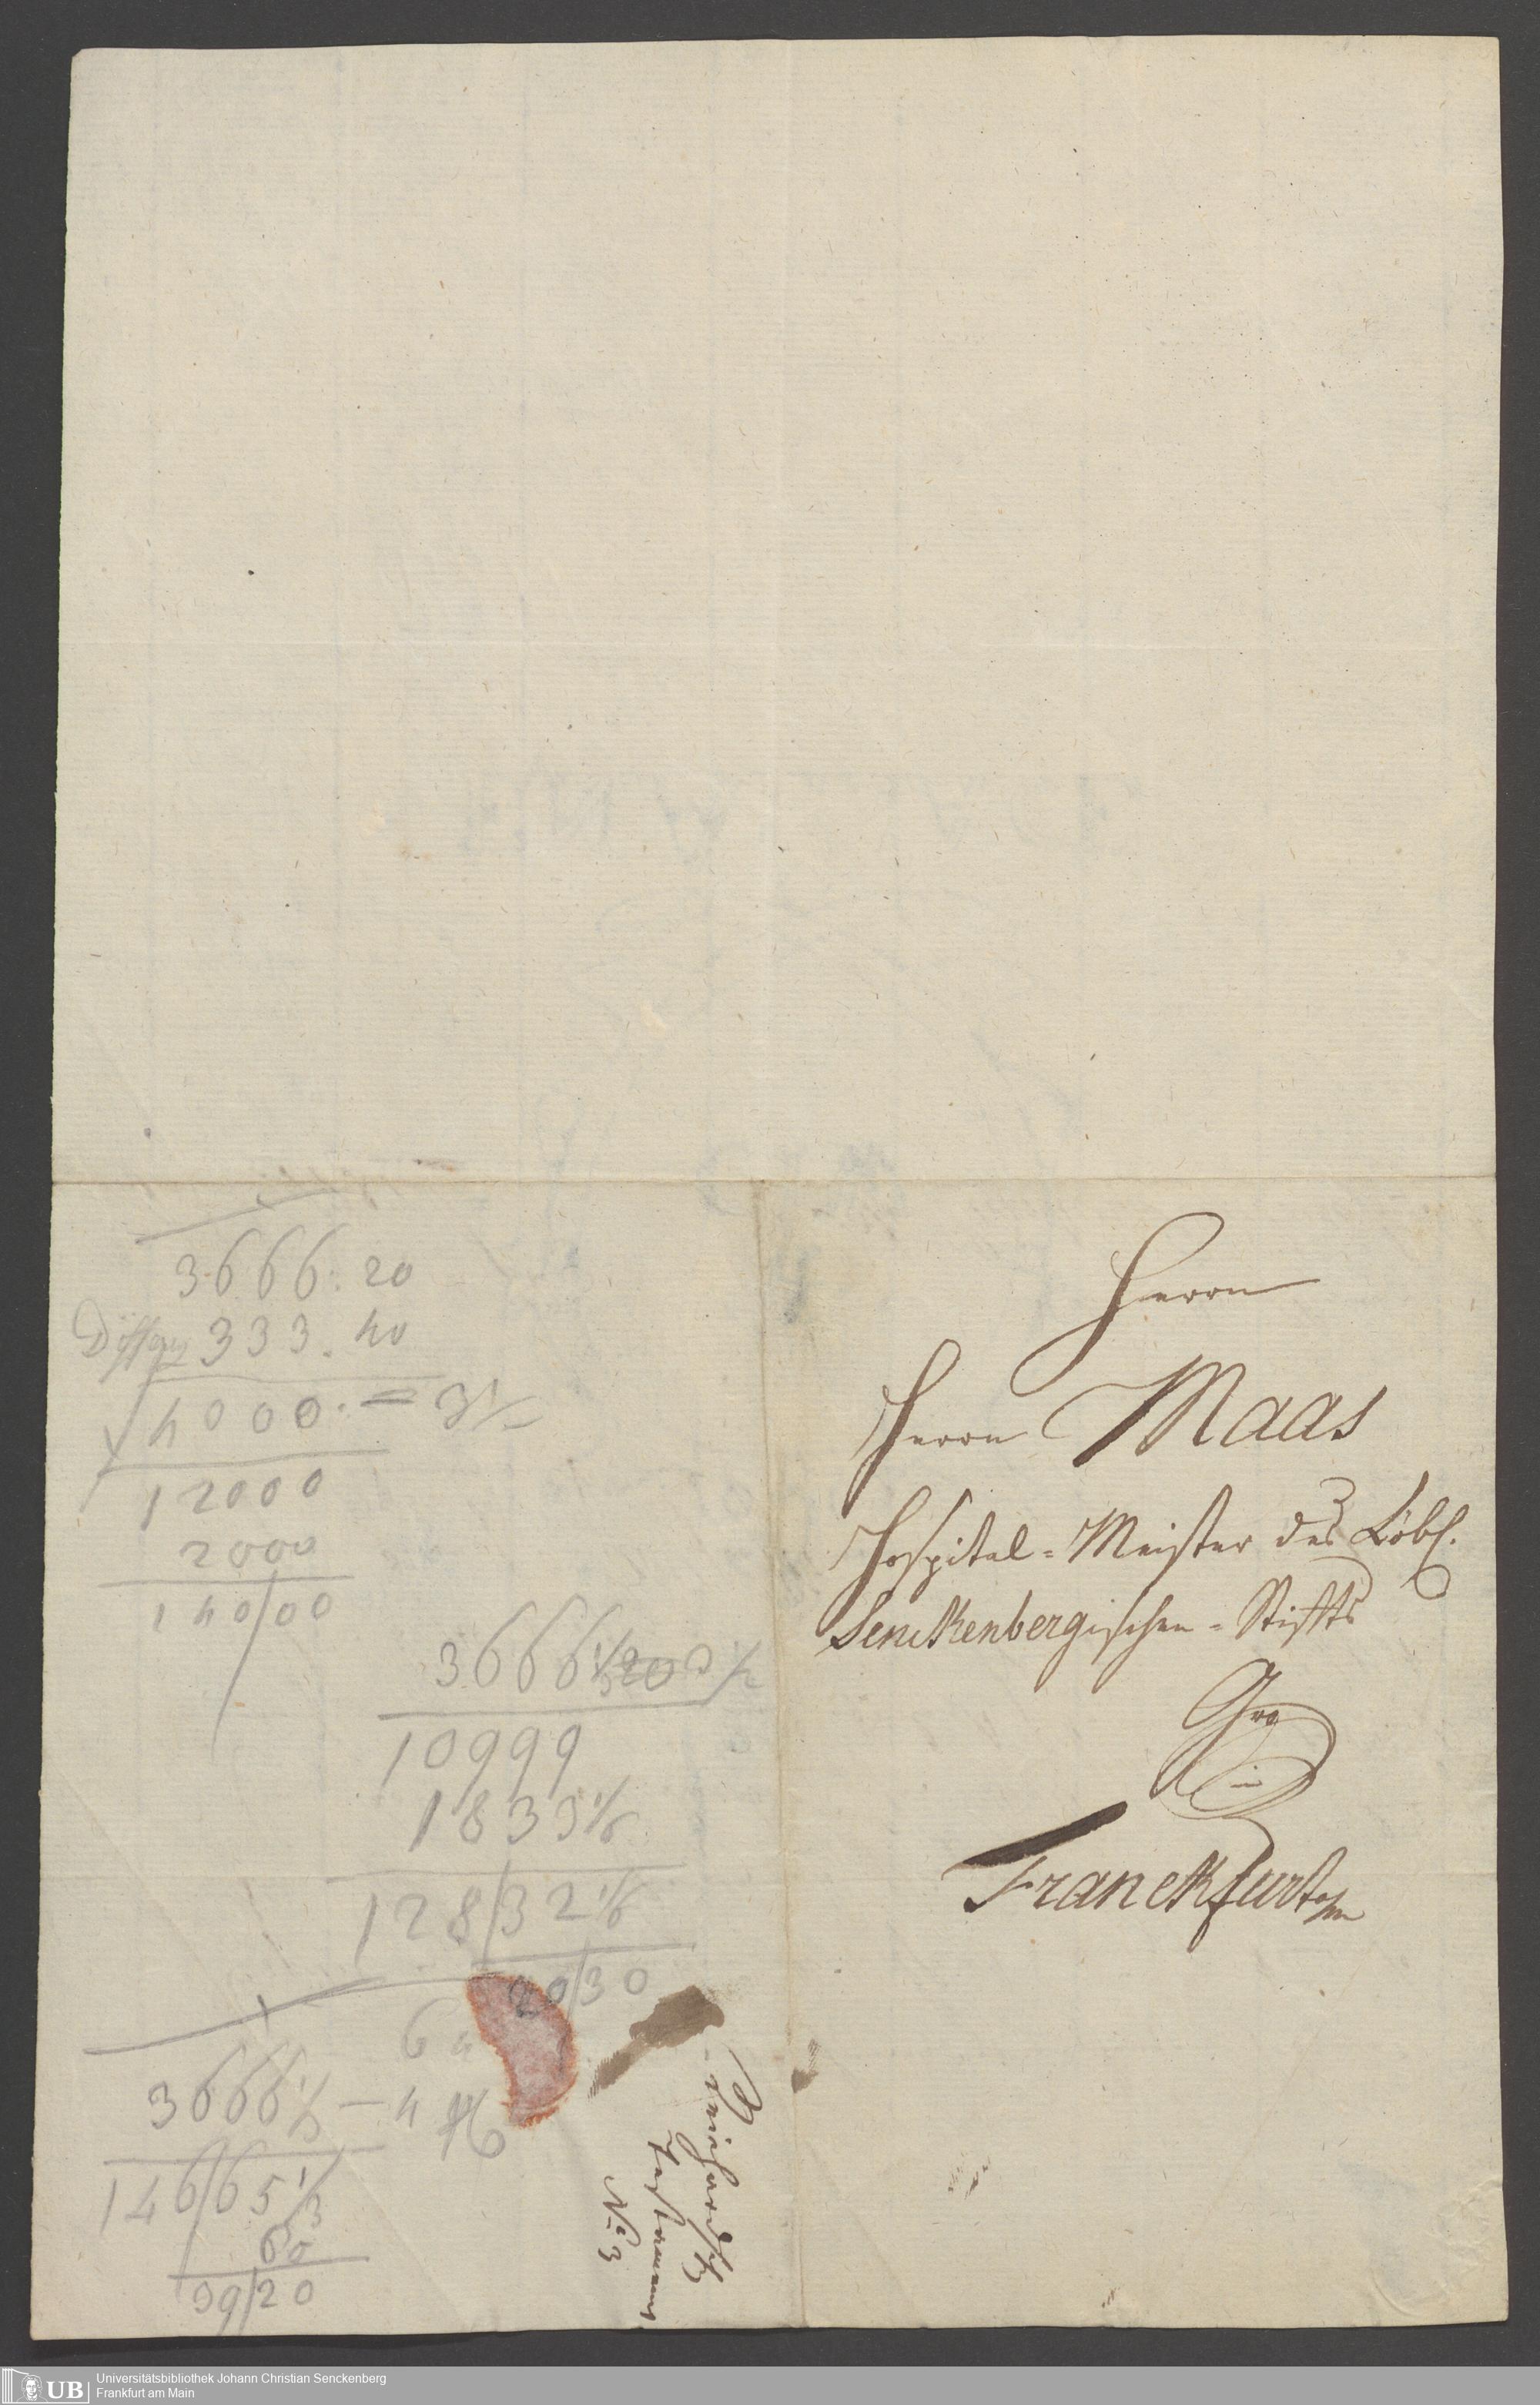 3666. 20
333. 40
4000. — 3½
12000
2000
140/00
3666⅓ 20 3½
10999
1833⅙
128/32⅙
20/30
60
3666⅓ — 4
146/65⅓
60
39/20
Herrn
Herrn Maas
Hospital-Meister des Löbl.
Senckenbergischen-Stiffts
in
Franckfurt a/m
Testament
No 3
Universitätsbibliothek Johann Christian Senckenberg
Frankfurt am Main
UB